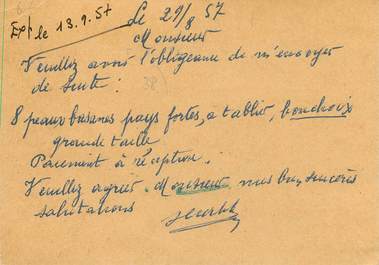 Expé le 13.9.57
Le 29/8 57
Monsieur
Veuillez avoir l'obligeance de m'envoyer
de suite :
8 peaux basanes pays fortes, a tablier, bon choix
grande taille
Paiement à réception.
Veuillez agréer Monsieur mes sincères
salutations